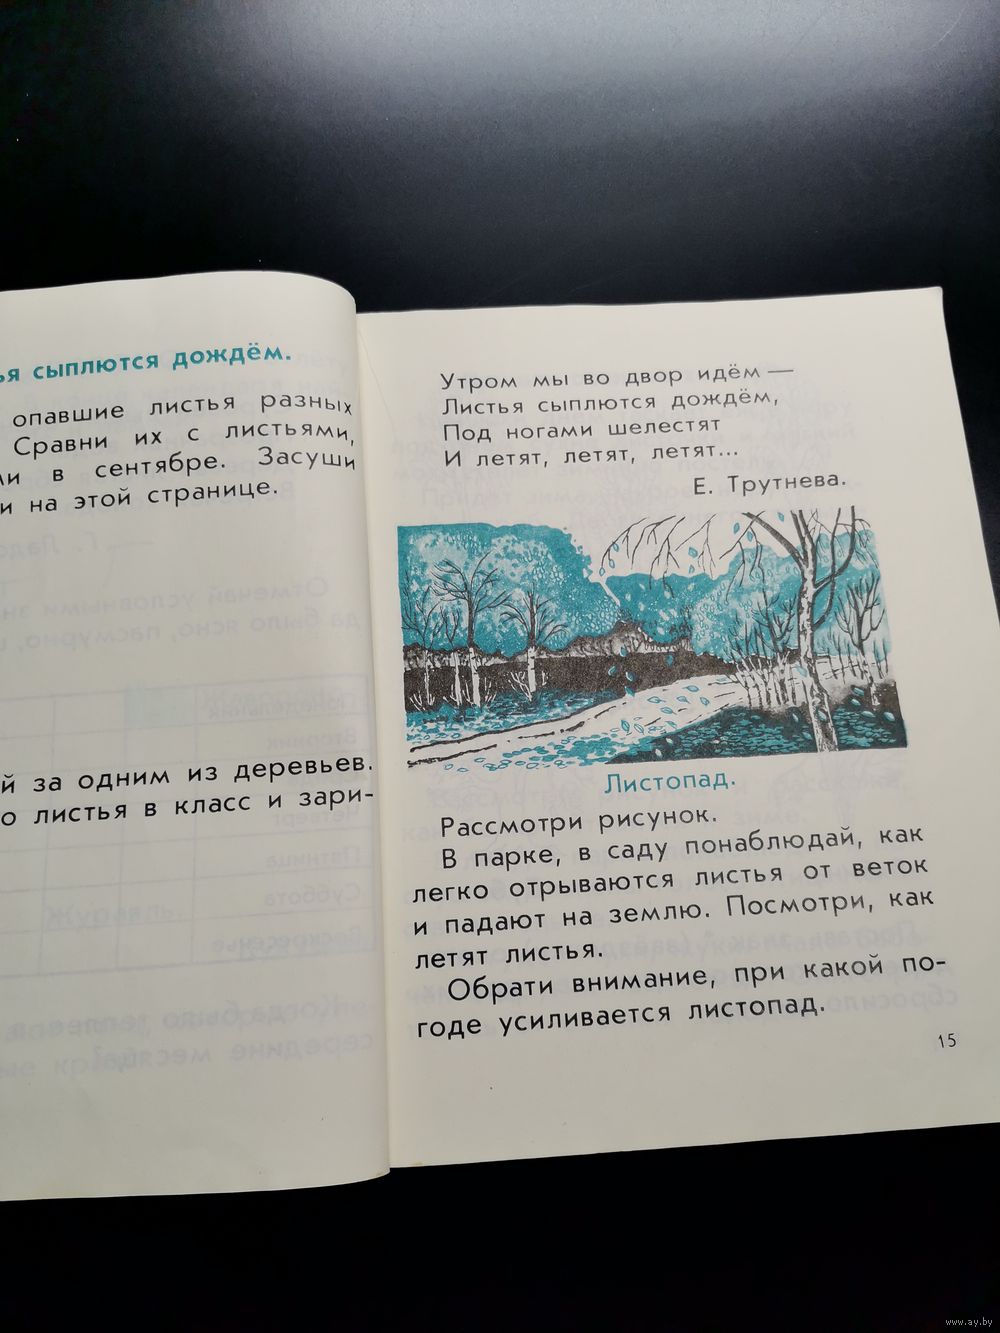 ья сыплются дождём.
опавшие листья разных
Сравни их с листьями,
ми в сентябре. Засуши
и на этой странице.
й за одним из деревьев.
о листья в класс и зари-
Утром мы во двор идём —
Листья сыплются дождём,
Под ногами шелестят
И летят, летят, летят...
Е. Трутнева.
Листопад.
Рассмотри рисунок.
В парке, в саду понаблюдай, как
легко отрываются листья от веток
и падают на землю. Посмотри, как
летят листья.
Обрати внимание, при какой по-
годе усиливается листопад.
15
www.ay.by